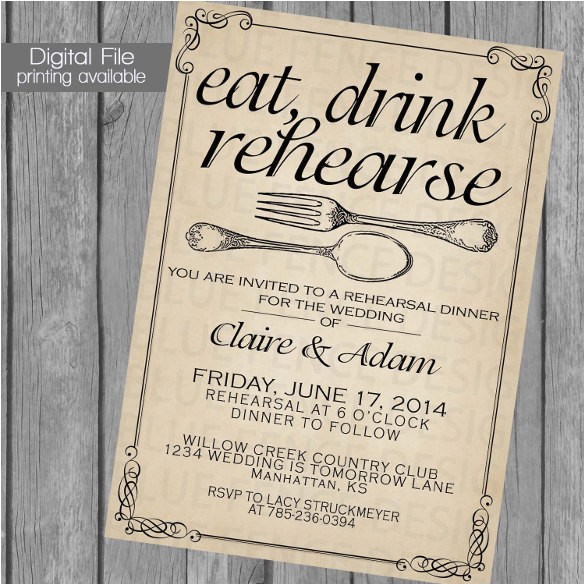 Digital File
printing available
eat, drink
rehearse
YOU ARE INVITED TO A REHEARSAL DINNER
FOR THE WEDDING
OF
Claire & Adam
FRIDAY, JUNE 17, 2014
REHEARSAL AT 6 O'CLOCK
DINNER TO FOLLOW
WILLOW CREEK COUNTRY CLUB
1234 WEDDING IS TOMORROW LANE
MANHATTAN, KS
RSVP TO LACY STRUCKMEYER
AT 785-236-0394